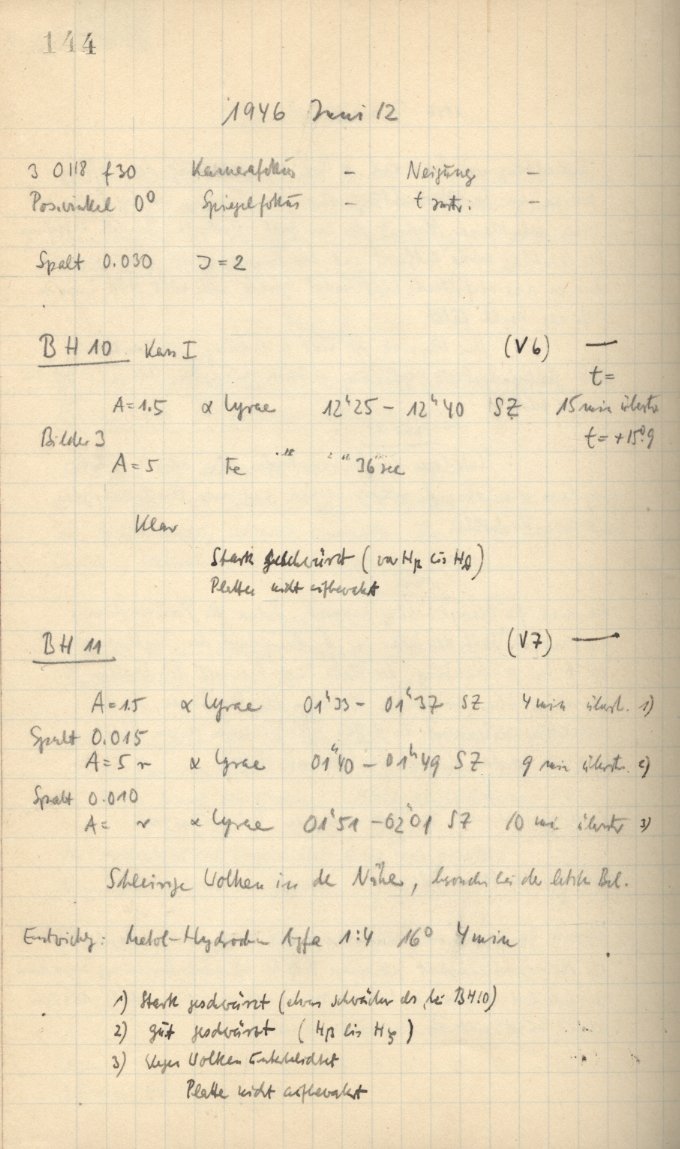 144
1946 Juni 12
3 0118 f30 Kamerafokus - Neigung -
Pos.winkel 0° Spiegelfokus - t
Spalt 0.030 J = 2
BH 10 Kass I (V6) —
t =
A = 1.5 α Lyrae 12ʰ25 - 12ʰ40 SZ 15 min
Bilder 3 t = +15°9
A = 5 Fe 36 sec
Klar
Stark geschwärzt (von Hβ bis )
Platte nicht aufbewahrt
BH 11 (V7) —
A = 1.5 α Lyrae 01ʰ33 - 01ʰ37 SZ 4 min überst. 1)
Spalt 0.015
A = 5 r α Lyrae 01ʰ40 - 01ʰ49 SZ 9 min überstr. 2)
Spalt 0.010
A = r α Lyrae 01ʰ51 - 02ʰ01 SZ 10 min überstr 3)
Schleirige Wolken in de Nähe, besonders bei der letzten Bel.
Entwicklg: Metol-Hydrochin Agfa 1:4 16° 4 min
1) Stark geschwärzt (etwas schwächer als bei BH10)
2) gut geschwärzt (Hβ bis )
3) wegen Wolken unterbelichtet
Platte nicht aufbewahrt